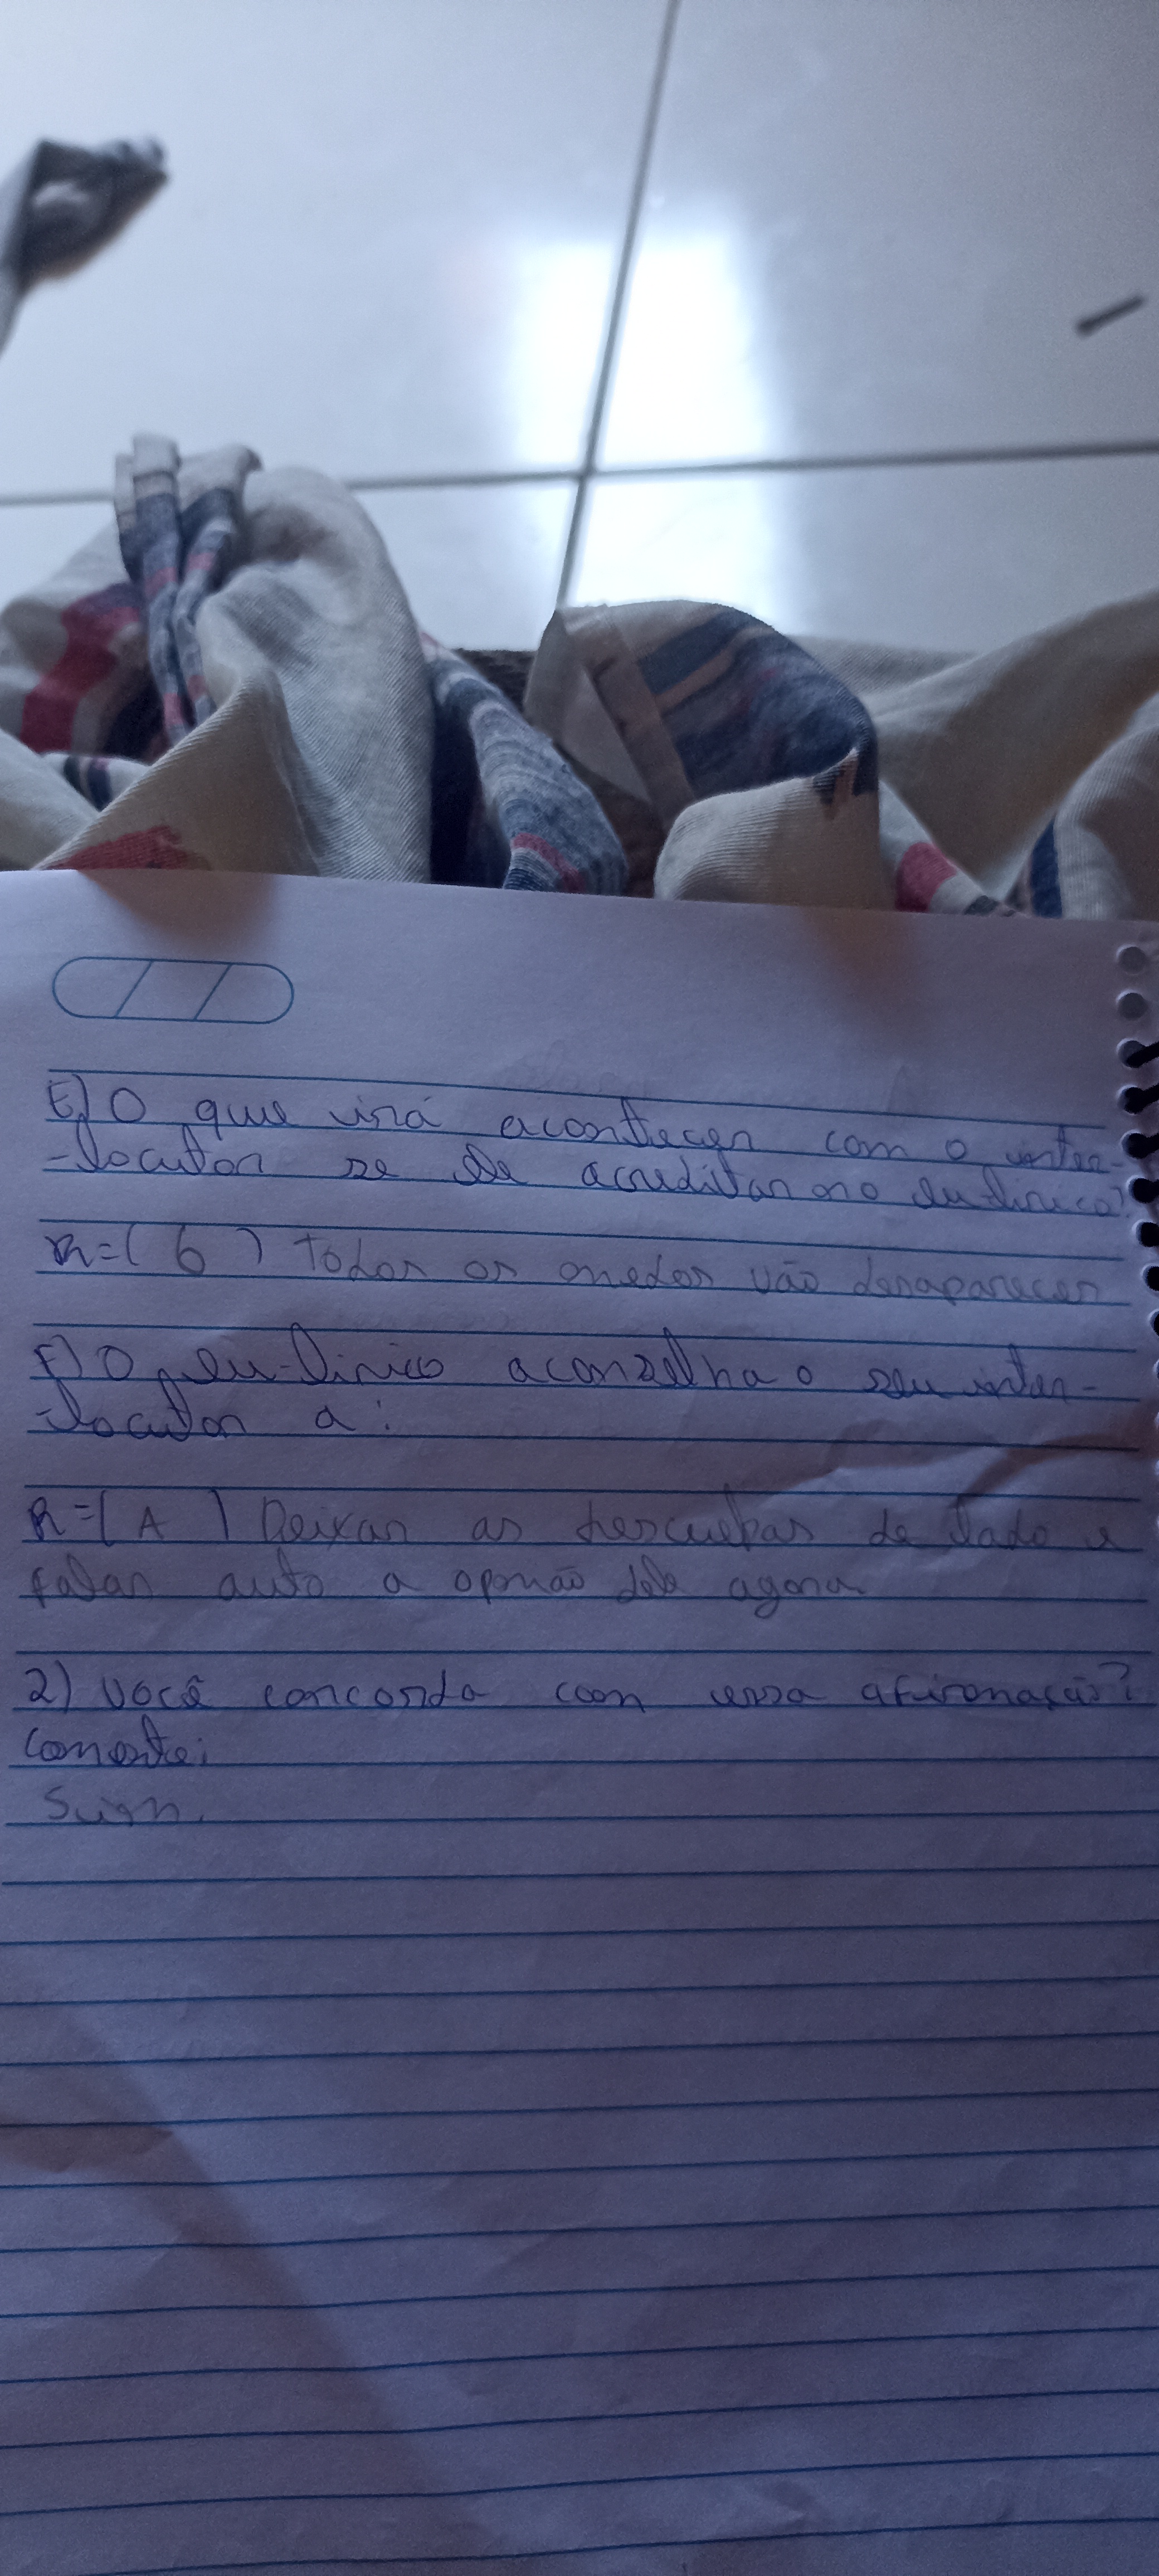 E) O que virá acontecer com o inter-
-locutor se ele acreditar no eu-lirico?
R=( b ) Todos os medos vão desaparecer
F) O eu-lirico aconselha o seu inter-
-locutor a:
R=( A ) Deixar as desculpas de lado e
falar auto a opinão dele agora
2) Você concorda com essa afirmação?
Comente:
Sim.